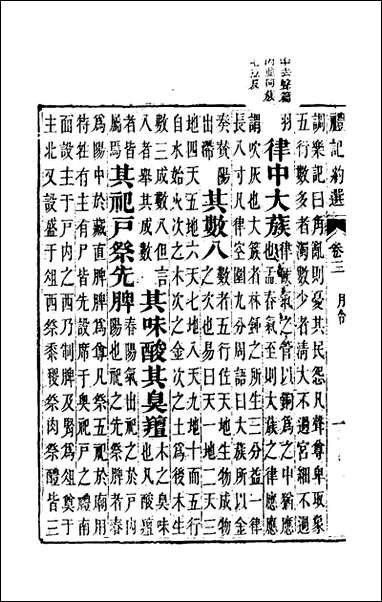 中去聲簇
內並同放
禮記約選 卷三 月令 一
調樂記曰角亂則憂其民怨凡聲尊卑取象
五行數多者濁數少者清大不過宮細不過
羽
律中大蔟
律候氣之管以銅爲之中猶應
也孟春氣至則大蔟之律應應
謂吹灰也大蔟者林鍾之所生三分益一律
長八寸凡律空圍九分周語曰大蔟所以金
奏贊陽
出滯
其數八
數者五行佐天地生物成物
之次也易曰天一地二天三
地四天五地六天七地八天九地十而五行
自水始火次之木次之金次之土爲後木生
數三成數八但言
八者舉其成數
其味酸其臭羶
木之臭味
也凡酸羶
者皆
屬焉
其祀戶祭先脾
春陽氣出祀之於戶內
陽也祀之先祭脾者春
爲陽中於藏直脾脾爲尊凡祭五祀於廟用
特牲有主有尸皆先設席于奧祀戶之禮南
面設主于戶內之西乃制脾及腎爲俎奠于
主北又設盛于俎西祭黍稷祭肉祭醴皆三